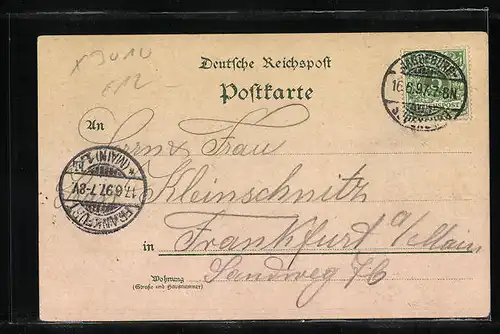 Deutsche Reichspost
Postkarte
MAGDEBURG
16.6.97. 7-8N.
An
Herrn & Frau
Kleinschnitz
in Frankfurt a/Main
Sandweg 76
Wohnung
(Straße und Hausnummer)
FRANKFURT
17.6.97. 7-8V.
(MAIN) 1.